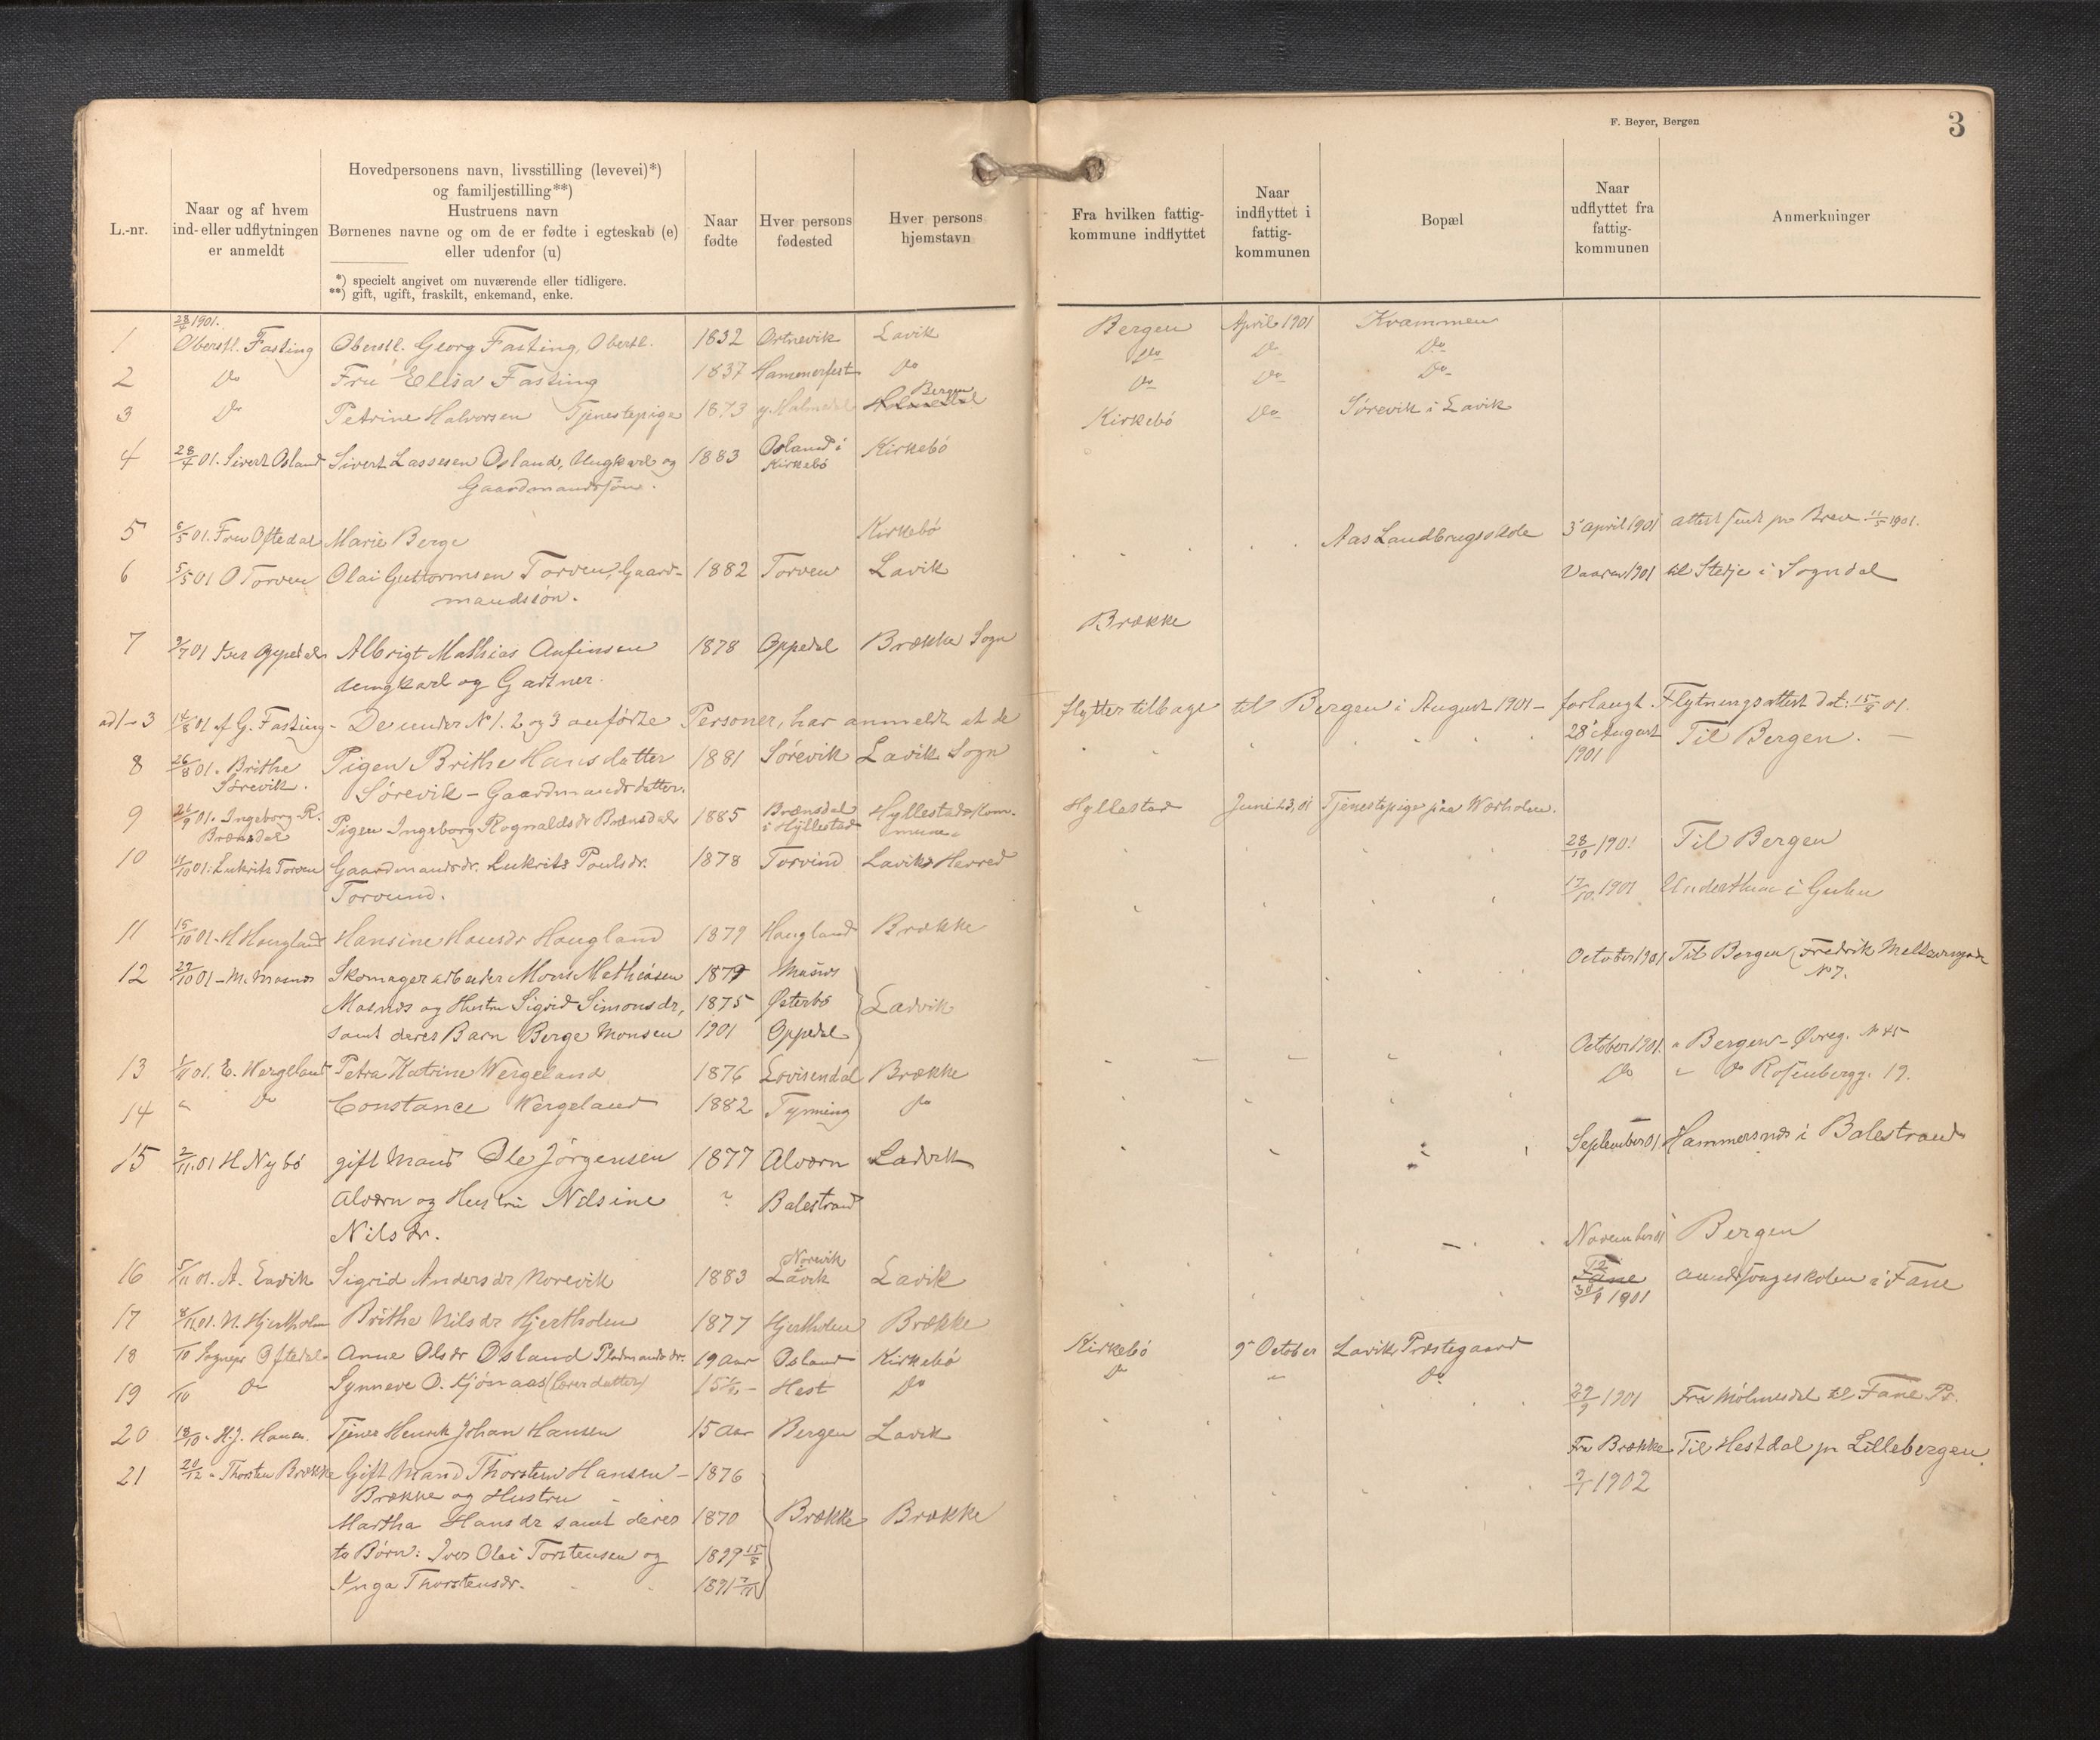 F. Beyer, Bergen
3
L.-nr.
Naar og af hvem
ind- eller udflytningen
er anmeldt
Hovedpersonens navn, livsstilling (levevei)*)
og familjestilling**)
Hustruens navn
Børnenes navne og om de er fødte i egteskab (e)
eller udenfor (u)
*) specielt angivet om nuværende eller tidligere.
**) gift, ugift, fraskilt, enkemand, enke.
Naar
fødte
Hver persons
fødested
Hver persons
hjemstavn
Fra hvilken fattig-
kommune indflyttet
Naar
indflyttet i
fattig-
kommunen
Bopæl
Naar
udflyttet fra
fattig-
kommunen
Anmerkninger
28/4 1901.
1 Oberstl. Fasting Oberstl. Georg Fasting, Oberstl. 1832 Ortnevik Lavik Bergen April 1901 Kvammen
2 Do Fru Elisa Fasting 1837 Hammerfest Do Do Do Do
3 Do Petrine Halvorsen Tjenestepige 1873 y. Holmedal Bergen Do Do Do
4 28/4 01. Sivert Osland Sivert Lassesen Osland, Ungkarl og 1883 Osland i Kirkebö Kirkebö Kirkebö Do Sörevik i Lavik
Gaardmandssön.
5 6/5 01. Fru Oftedal Marie Berge Kirkebö Aas Landbrugsskole 3' april 1901 attest sendt pr Brev 11/5 1901.
6 5/5 01 O Torven Olai Guttormsen Torven, Gaard- 1882 Torven Lavik Vaaren 1901 til Stedje i Sogndal
mandssön.
7 9/7 01 Iver Oppedal Albrigt Mathias Anfinsen 1878 Oppedal Brække Sogn Brække
Ungkarl og Gartner.
ad 1-3 14/8 01 af G. Fasting - De under No 1. 2 og 3 anförte Personer, har anmeldt at de flytter tilbage til Bergen i August 1901 - forlangt Flytningsattest dat. 15/8 01.
8 26/8 01. Brithe Pigen Brithe Hansdatter 1881 Sörevik Lavik Sogn 28' August 1901 Til Bergen. -
Sörevik. Sörevik - Gaardmandsdatter.
9 21/9 01. Ingeborg R. Brænsdal Pigen Ingeborg Rognaldsdr Brænsdal 1885 Brænsdal i Hyllestad Hyllestad Kom-mune Hyllestad Juni 23, 01 Tjenestepige paa Værholm.
10 11/10 01. Lukrits Torven Gaardmandsdr. Lukrits Poulsdr. 1878 Torvund Laviks Herred 28/10 1901 Til Bergen
Torvund.
11 15/10 01 - H Hougland Hansine Hansdr Hougland 1879 Hougland Brække 17/10. 1901 Underthun i Gulen
12 29/10 01 - M. Masnes Skomagerarbeider Mons Mathiasen 1879 Masnes October 1901 Til Bergen (Fredrik Meltzersgade
No 7.
Masnes og Hustru Sigrid Simonsdr, 1875 Østerbö Ladvik
samt deres Barn Berge Monsen 1901 Oppedal
13 1/11 01. E. Wergeland Petra Katrine Wergeland 1876 Lovisendal Brække October 1901. " Bergen - Øvreg. No 45
14 " Do Constance Wergeland 1882 Tynning Do Do " Do Rosenbergg. 19.
15 2/11. 01 H Nybö gift Mand Ole Jörgensen 1877 Alværn Ladvik September 01. Hammersnes i Balestrand
Alværn og Hustru Nilsine ? Balestrand
Nilsdr.
16 5/11 01. A. Lavik Sigrid Andersdr Norevik 1883 Norevik Lavik Lavik November 01 Bergen
17 8/11 01. N. Hjertholm Brithe Nilsdr Hjertholm 1877 Hjertholm Brække 30/9 1901 Amdtsungeskolen i Fane
18 /10 Sognepr Oftedal Anne Olsdr Osland Pladsmandsdr. 19 Aar Osland Kirkebö Kirkebö 9' October Laviks Præstegaard
19 /10 Do Synneve O. Kjönaas (Lærerdatter) 15 1/2 - Hest Do Do " Do
20 18/10 " H.J. Hansen Tjener Henrik Johan Hansen 15 Aar Bergen Lavik 29/9 1901 Fra Mölmesdal til Fane Pr.
21 20/12 " Thorsten Brække Gift Mand Thorsten Hansen - 1876 Fra Brække Til Hestdal pr Lillebergen.
Brække og Hustru 2/1 1902
Martha Hansdr samt deres 1870 Brække Brække
to Börn: Iver Olai Torstensen og 1899 15/5
Inga Thorstensdr. 1891 7/11